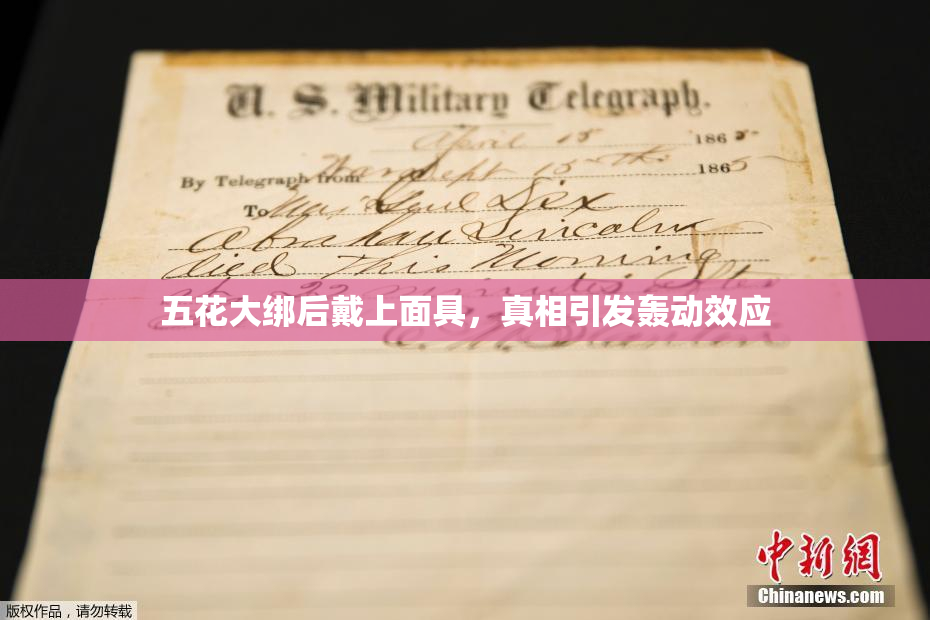 U. S. Military Telegraph.
April 15 1865
By Telegraph from War Dept 15th 1865
To Maj Genl Dix
Abraham Lincoln
died This Morning
at 22 minutes after
五花大绑后戴上面具，真相引发轰动效应
E. M. Stanton
中新网
Chinanews.com
版权作品，请勿转载